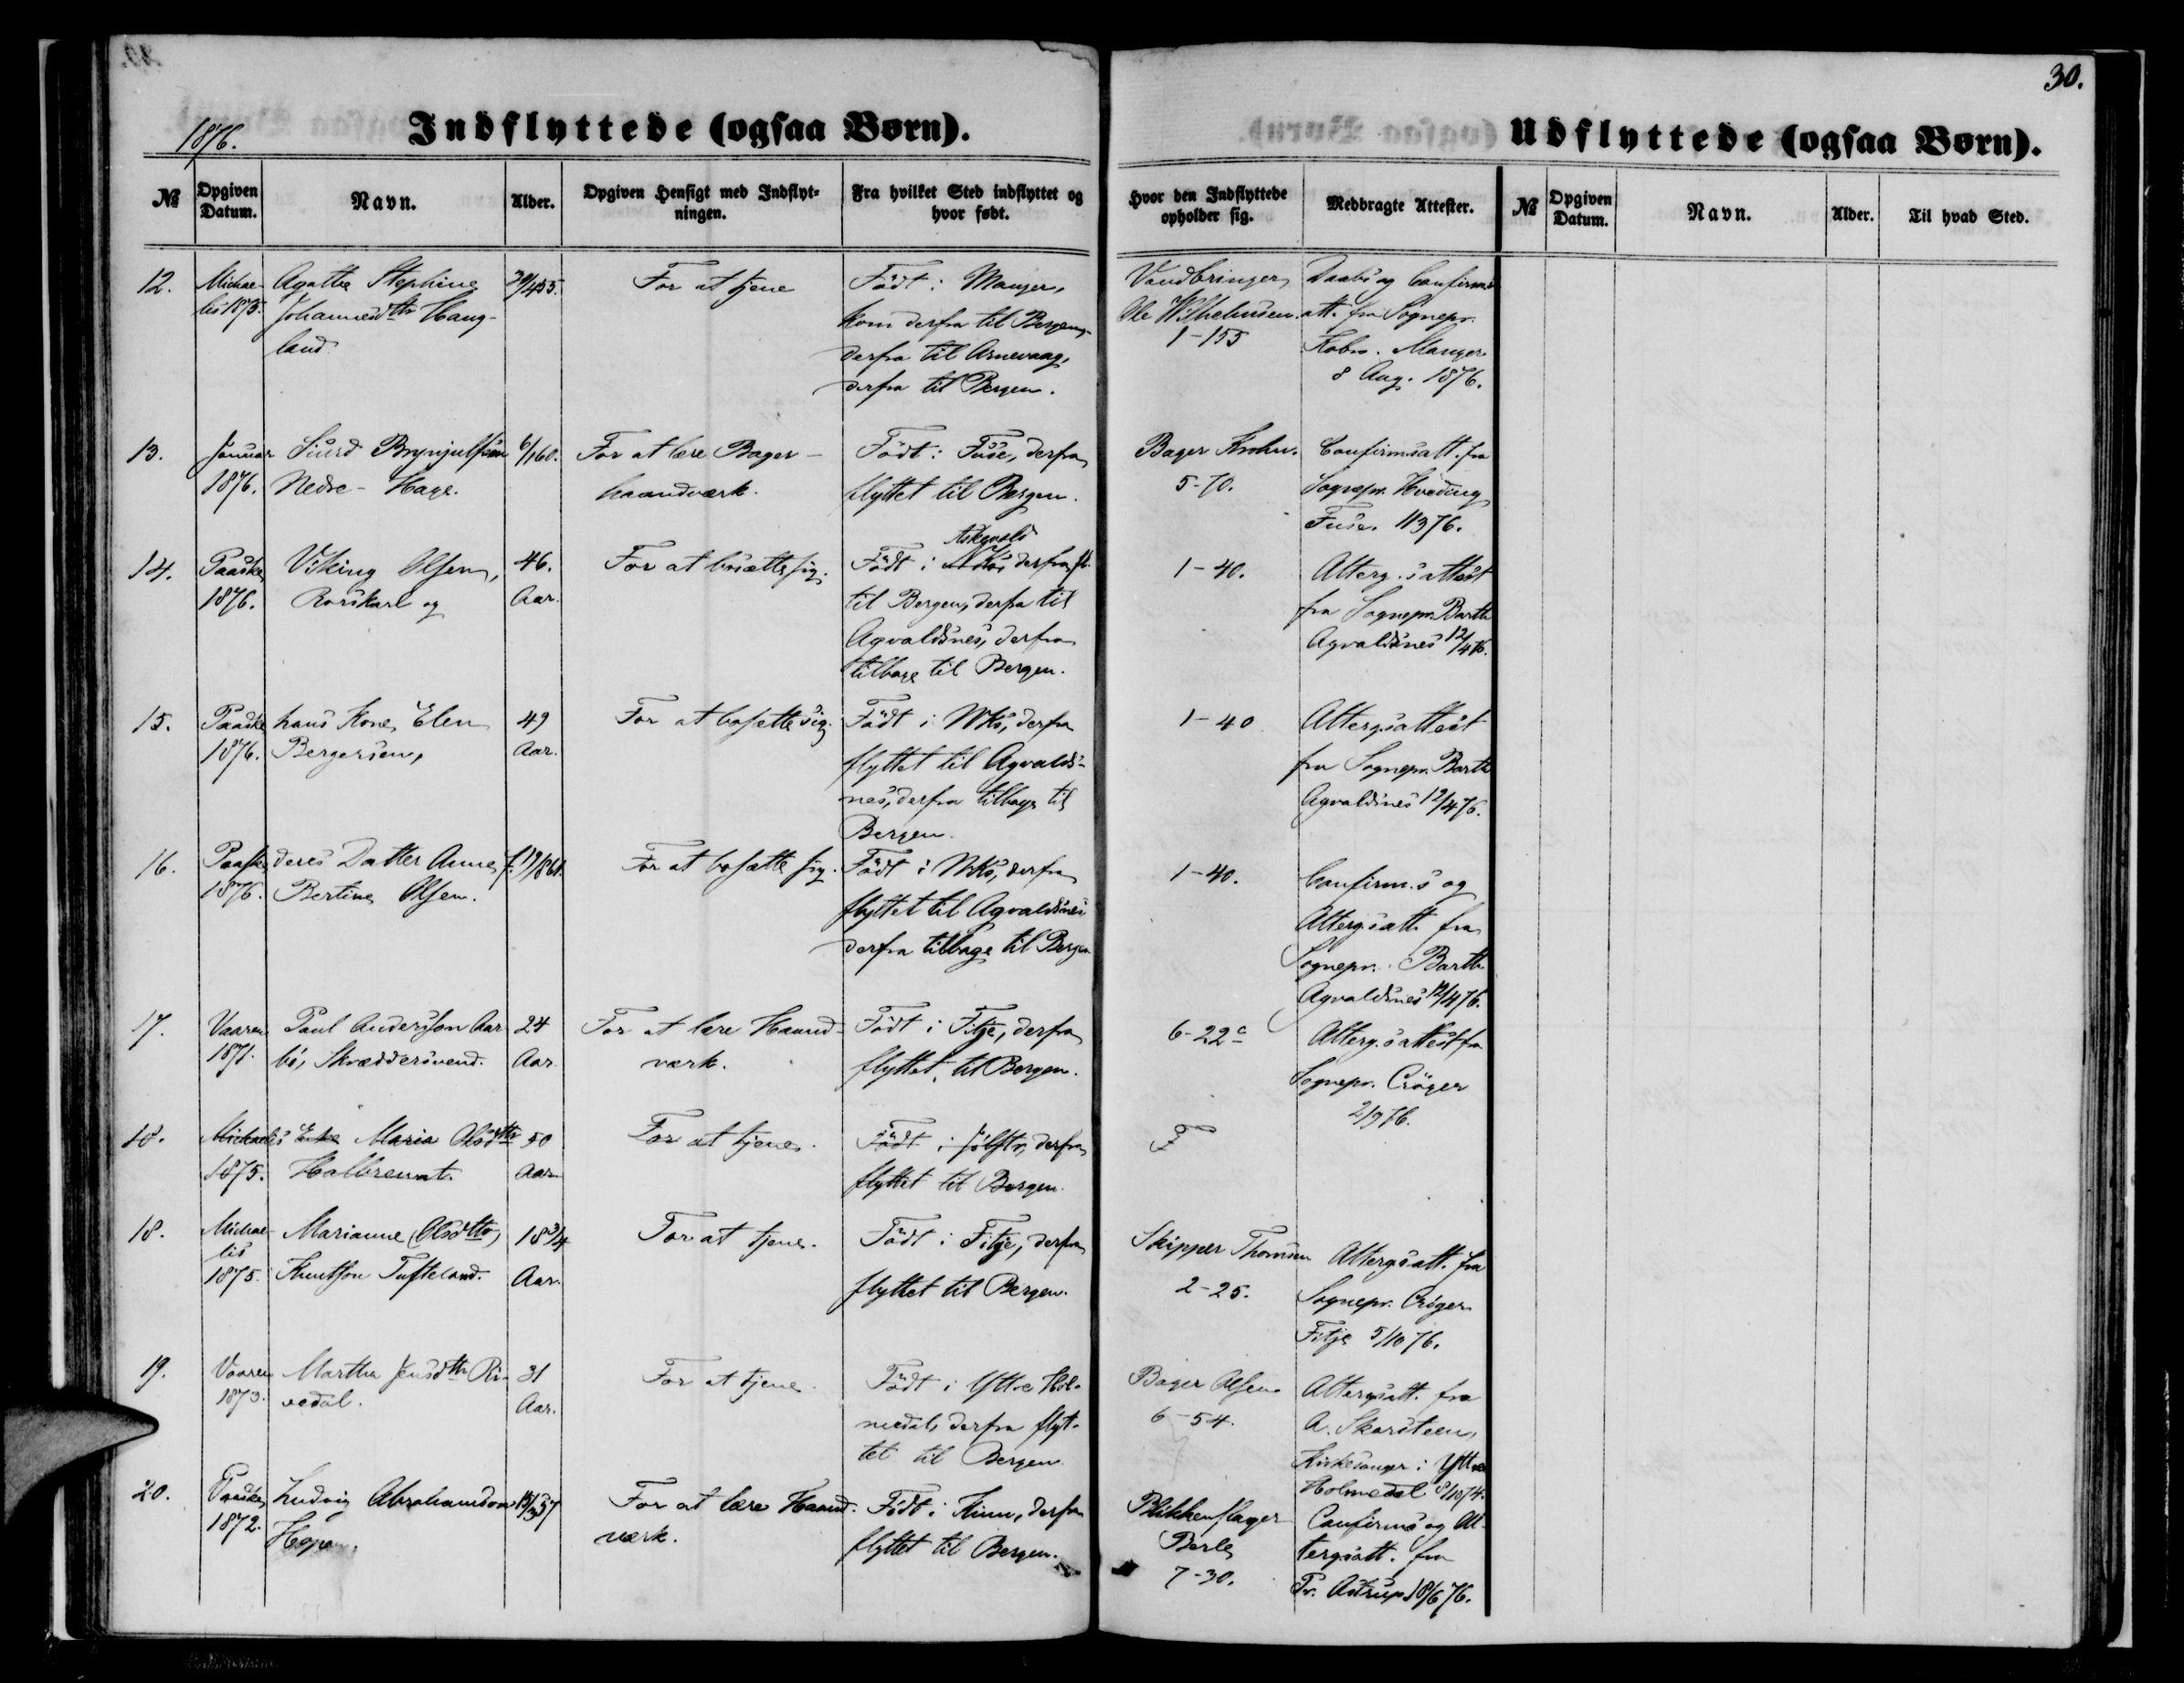 30.
1876.
Indflyttede (ogsaa Børn).
Udflyttede (ogsaa Børn).
№
Opgiven Datum.
Navn.
Alder.
Opgiven Hensigt med Indflyt-
ningen.
Fra hvilket Sted indflyttet og
hvor født.
Hvor den Indflyttede
opholder sig.
Medbragte Attester.
№
Opgiven Datum.
Navn.
Alder.
Til hvad Sted.
12.
Michae-
lis 1875.
Agathe Stephine
Johannesdtr Haug-
land
30/455.
For at tjene
Födt i Manger,
kom derfra til Bergen,
derfra til Arnevaag,
derfra til Bergen.
Vandbringer
Ole Wilhelmsen.
1-155
Daabs og Confirms
att. fra Sognepr.
Kobro. Manger
8 Aug. 1876.
13.
Januar
1876.
Siurd Brynjulfsen
Nedre-Hage.
6/160.
For at lære Bager-
haandværk.
Födt i Fuse, derfra
flyttet til Bergen.
Bager Krohn.
5-70.
Confirmsatt. fra
Sognepr. Hveding
Fuse. 11376.
14.
Paaske
1876.
Viking Olsen,
Rorskarl og
46.
Aar.
For at bosætte sig.
Askevold
Födt i NKs, derfra fl.
til Bergen, derfra til
Agvaldsnes, derfra
tilbage til Bergen.
1-40.
Alterg.sattest
fra Sognepr. Barth
Agvaldsnes 12/476.
15.
Paaske
1876.
hans Kone, Elen
Bergersen,
49
Aar.
For at bosætte sig.
Födt i NKs, derfra
flyttet til Agvalds-
nes, derfra tilbage til
Bergen.
1-40
Altergsattest
fra Sognepr. Barth
Agvaldsnes 12/476.
16.
Paaske
1876.
deres Datter Anne
Bertine Olsen.
f. 19/861.
For at bosætte sig.
Födt i NKs, derfra
flyttet til Agvaldsnes
derfra tilbage til Bergen
1-40.
Confirm.s og
Altergsatt. fra
Sognepr. Barth
Agvaldsnes 12/476.
17.
Vaaren
1871.
Paul Andersson Aar-
bö, Skræddersvend.
24
Aar.
For at lære Haand-
værk.
Födt i Fitje, derfra
flyttet til Bergen.
6-22c
Alterg.sattest fra
Sognepr. Cröger
2/976.
18.
Michaelis
1875.
Enke Maria Olsdtr
Halbrendt.
50
Aar.
For at tjene.
Födt i Jölster, derfra
flyttet til Bergen.
18.
Michae-
lis
1875.
Marianne (Olsdtr)
Knutson Tufteland.
18 3/4
Aar.
For at tjene.
Födt i Fitje, derfra
flyttet til Bergen.
Skipper Thomsen
2-25.
Altergsatt. fra
Sognepr. Cröger
Fitje 5/1076.
19.
Vaaren
1873.
Martha Jensdtr Ri-
vedal.
31
Aar.
For at tjene.
Födt i Yttre Hol-
medal, derfra flyt-
tet til Bergen
Bager Olsen
6-54.
Altergsatt. fra
A. Skarsteen,
Kirkesanger i Yttre
Holmedal 8/1074.
20.
Paaske
1872.
Ludvig Abrahamson
Hope.
15/357
For at lære Haand-
værk.
Födt i Kinn, derfra
flyttet til Bergen.
Blikkenslager
Berle
7-30.
Confirms og Al-
tergsatt. fra
Pr. Astrup 18/676.